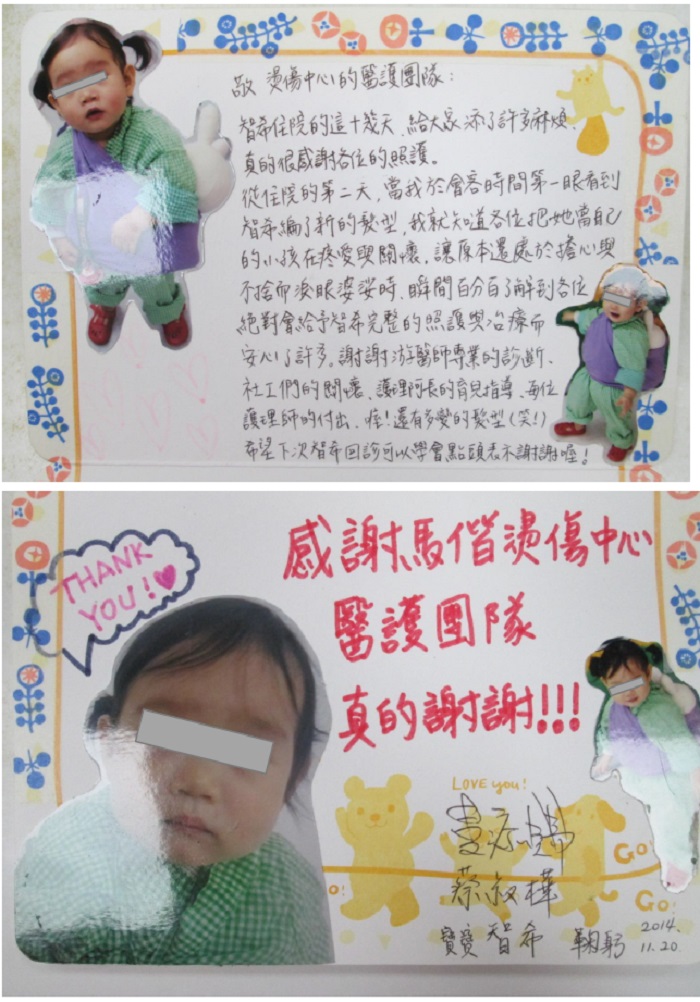 敬 燙傷中心的醫護團隊：
智希住院的這十幾天、給大家添了許多麻煩、
真的很感謝各位的照護。
從住院的第二天，當我於會客時間第一眼看到
智希編了新的髮型，我就知道各位把她當自己
的小孩在疼愛與關懷，讓原本還處於擔心與
不捨而淚眼婆娑時、瞬間百分百了解到各位
絕對會給予智希完整的照護與治療而
安心了許多。謝謝游醫師專業的診斷、
社工們的關懷、護理阿長的育兒指導、每位
護理師的付出、還有多變的髮型（笑!）
希望下次智希回診可以學會點頭表示謝謝喔!
THANK
YOU!
感謝馬偕燙傷中心
醫護團隊
真的謝謝!!!
LOVE you!
蔡叔樺
Go!
Go!
寶愛 智希 鞠躬
2014.
11.20.